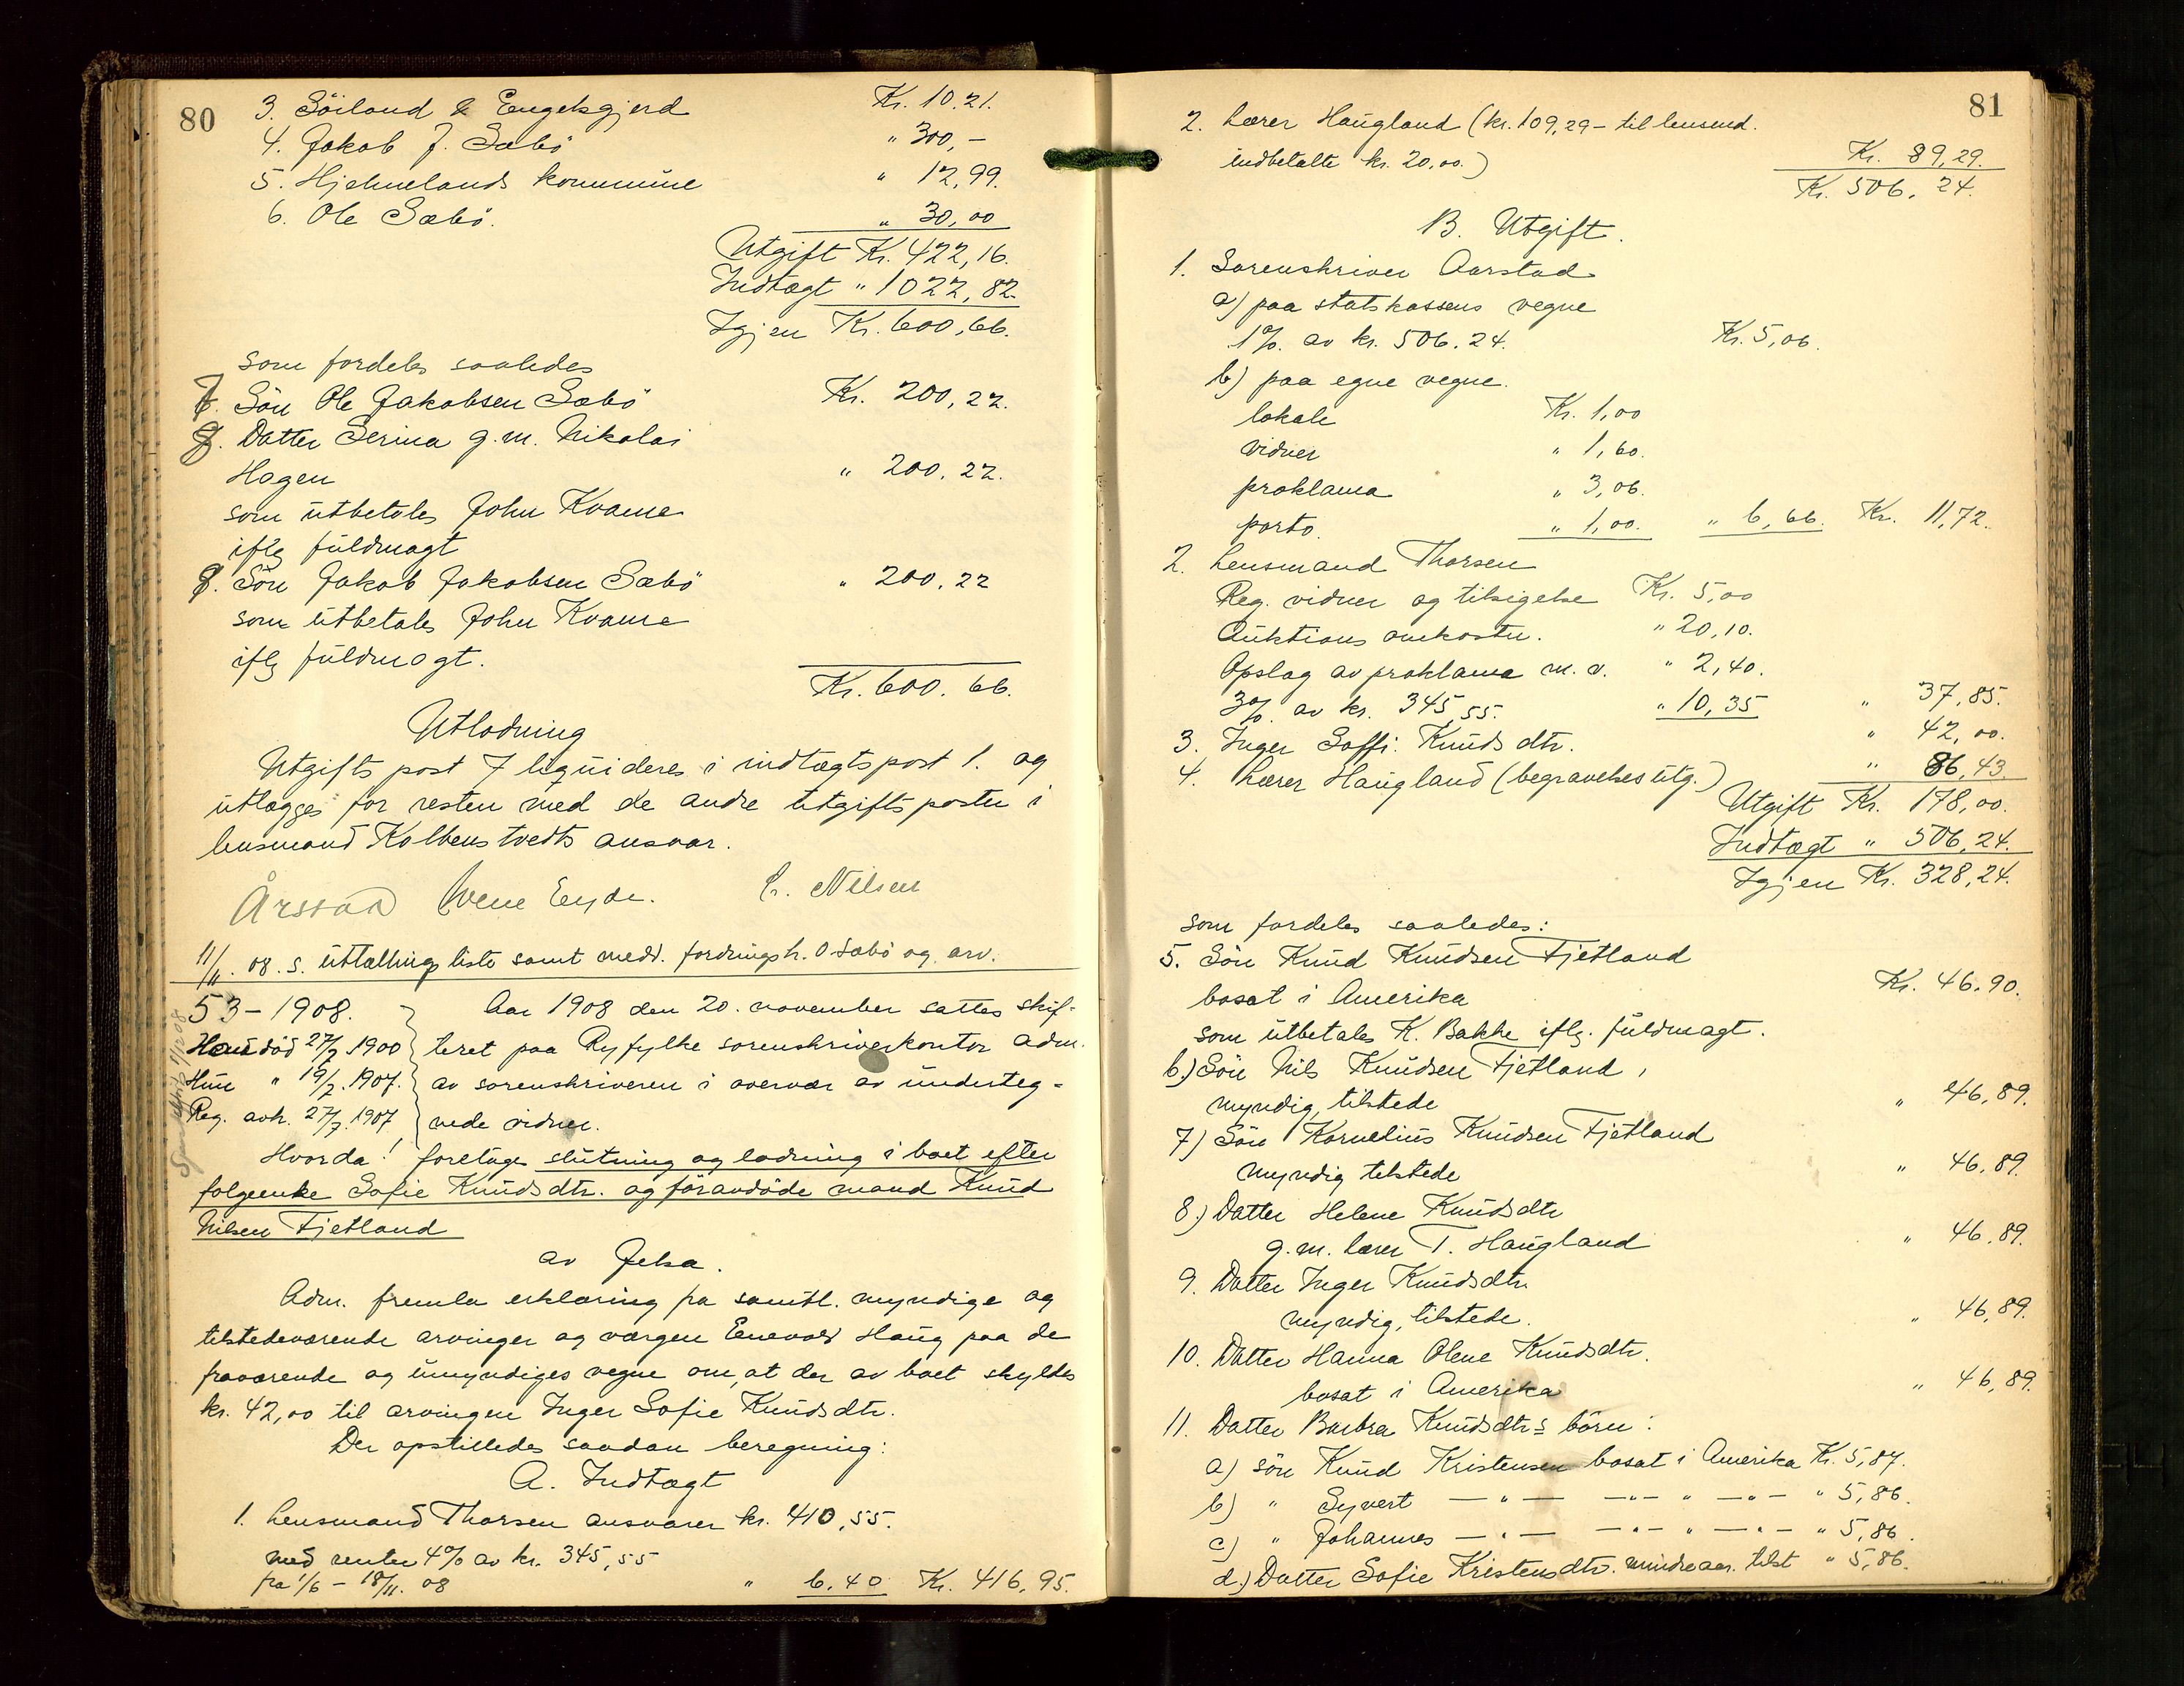 80
3. Söiland & Engelsgjerd Kr. 10.21.
4. Jakob J. Sæbö " 300,-
5. Hjelmelands kommune " 12,99.
6. Ole Sæbö. " 30,00
Utgift Kr. 422,16.
Indtægt " 1022,82.
Igjen Kr. 600,66.
som fordeles saaledes
7. Sön Ole Jakobsen Sæbö Kr. 200,22.
8. Datter Serina g.m. Nikolai
Hagen " 200,22.
som utbetales John Kvame
iflg fuldmagt
9. Sön Jakob Jakobsen Sæbö " 200,22
som utbetales John Kvame
iflg fuldmagt.
Kr. 600.66.
Utlodning
Utgiftspost 7 liquideres i indtægtspost 1. og
utlægges for resten med de andre utgiftsposter i
lensmand Kolbenstvedts ansvar.
Årstad
Nilsen
11/11. 08. s. uttællingsliste samt medd. fordringsh. O Sæbö og arv.
53 - 1908.
Han död 27/7 1900
Hun " 19/7. 1907.
Reg. avh. 27/7. 1907
Aar 1908 den 20. november sattes skif-
teret paa Ryfylke sorenskriverkontor adm.
av sorenskriveren i overvær av underteg-
nede vidner.
Hvorda! foretoges slutning og lodning i boet efter
folgeenke Sofie Knudsdtr. og föravdöde mand Knud
Nilsen Fjetland
av Jelsa.
Adm. fremla erklæring fra samtl. myndige og
tilstedeværende arvinger og værgen Enevald Haug paa de
fraværende og umyndiges vegne om, at der av boet skyldes
kr. 42,00 til arvingen Inger Sofie Knudsdtr.
Der opstilledes saadan beregning:
A. Indtægt
1. Lensmand Thorsen ansvarer kr. 410,55.
med renter 4% av kr. 345,55
fra 1/6 - 18/11. 08 " 6.40 Kr. 416,95.
81
2. Lærer Haugland (kr. 109,29 - til lensmd.
indbetalte kr. 20,00.) Kr. 89,29.
Kr. 506,24.
B. Utgift.
1. Sorenskriver Aarstad
a) paa statskassens vegne
1%. av kr. 506.24. Kr. 5,06.
b) paa egne vegne.
lokale Kr. 1,00
vidner " 1,60.
proklama " 3,06.
porto. " 1,00. " 6,66. Kr. 11,72.
2. Lensmand Thorsen
Reg. vidner og tilsigelse Kr. 5,00
Auktions omkostn. " 20,10.
Opslag av proklama m.v. " 2,40.
3%. av kr. 345,55. " 10,35 " 37,85.
3. Inger Soffi. Knudsdtr. " 42,00.
4. Lærer Haugland (begravelsesutg.) " 86,43.
Utgift Kr. 178,00.
Indtægt " 506,24.
Igjen Kr. 328,24.
som fordeles saaledes:
5. Sön Knud Knudsen Fjetland
bosat i Amerika Kr. 46.90.
som utbetales K. Bakke iflg. fuldmagt.
6.) Sön Nils Knudsen Fjetland,
myndig, tilstede " 46,89.
7) Sön Kornelius Knudsen Fjetland
myndig tilstede " 46,89.
8.) Datter Helene Knudsdtr
g.m. lærer T. Haugland " 46,89.
9. Datter Inger Knudsdtr
myndig, tilstede. " 46,89.
10. Datter Hanna Olene Knudsdtr.
bosat i Amerika " 46,89.
11. Datter Barbra Knudsdtrs börn:
a) sön Knud Kristensen bosat i Amerika Kr. 5,87.
b) " Syvert — " — — " — " — " — " 5,86.
c) " Johannes — " — — " — " — " — " 5,86.
d.) Datter Sofie Kristensdtr. mindreaar. tilst " 5,86.